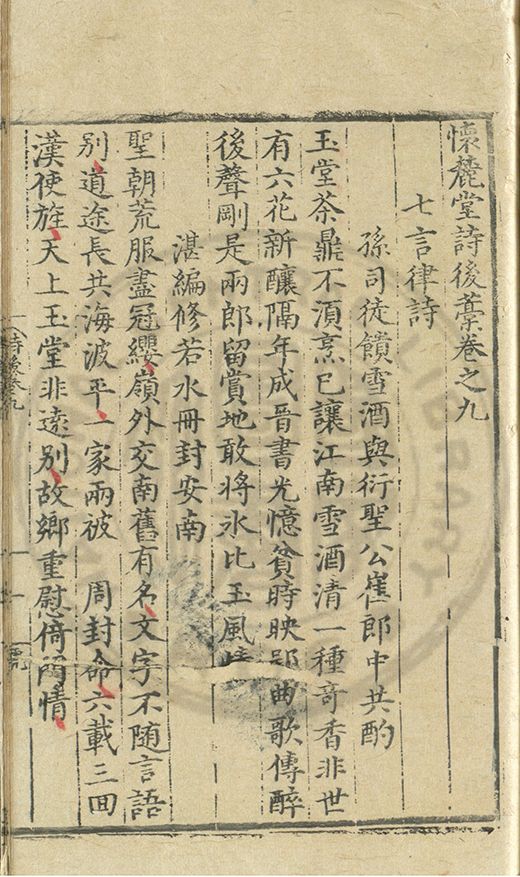 懷麓堂詩後藁卷之九
七言律詩
孫司徒饋雪酒與衍聖公崔郎中共酌
玉堂茶鼎不湏烹已讓江南雪酒清一種竒香非世
有六花新釀隔年成晉書光憶貧時映郢曲歌傳醉
後聲剛是兩郎留賞地敢將氷比玉風情
湛編修若水冊封安南
聖朝荒服盡冠纓嶺外交南舊有名文字不隨言語
别道途長共海波平一家兩被 周封命六載三回
漢使旌天上玉堂非遠别故鄉重慰倚門情